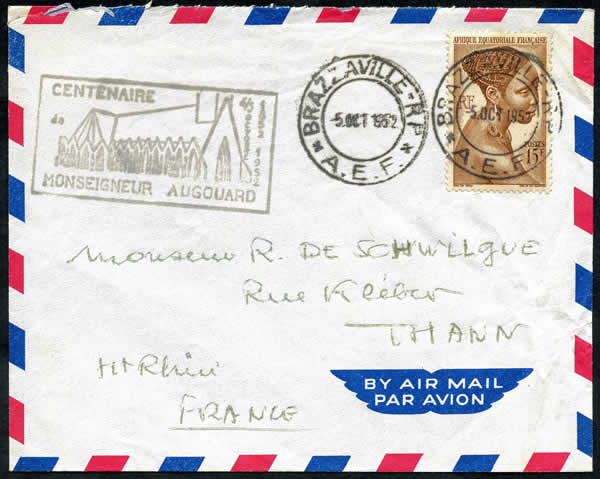 CENTENAIRE
de
MONSEIGNEUR AUGOUARD
1852 1952
BRAZZAVILLE-RP
-5 OCT 1952
* A.E.F. *
AFRIQUE EQUATORIALE FRANÇAISE
RF
POSTES
15F
BRAZZAVILLE-RP
-5 OCT 1952
* A.E.F.
Monsieur R. DE SCHWILGUE
Rue Kléber
THANN
Ht Rhin
FRANCE
BY AIR MAIL
PAR AVION